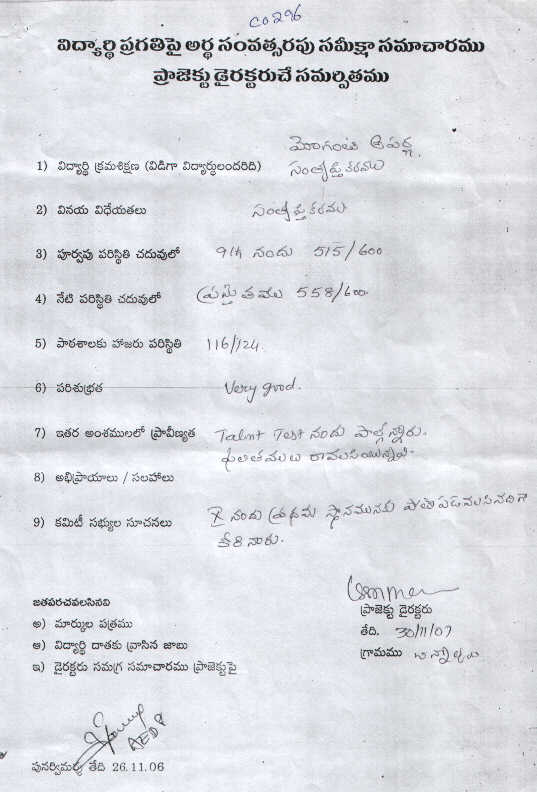 CO296
విద్యార్థి ప్రగతిపై అర్థ సంవత్సరపు సమీక్షా సమాచారము
ప్రాజెక్టు డైరక్టరుచే సమర్పితము
అపర్ణ
1) విద్యార్థి క్రమశిక్షణ (విడిగా విద్యార్థులందరిది) సంతృప్తికరము
2) వినయ విధేయతలు సంతృప్తికరము
3) పూర్వపు పరిస్థితి చదువులో 9th నందు 515/600
4) నేటి పరిస్థితి చదువులో ప్రస్తుతము 558/600
5) పాఠశాలకు హాజరు పరిస్థితి 116/124.
6) పరిశుభ్రత Very good.
7) ఇతర అంశములలో ప్రావీణ్యత Talent Test నందు పాల్గొన్నారు.
ఫలితములు రావలసియున్నవి.
8) అభిప్రాయాలు / సలహాలు
9) కమిటీ సభ్యుల సూచనలు X నందు ప్రథమ స్థానమునకు
కోరినారు.
జతపరచవలసినవి
అ) మార్కుల పత్రము
ఆ) విద్యార్థి దాతకు వ్రాసిన జాబు
ఇ) డైరక్టరు సమగ్ర సమాచారము ప్రాజెక్టుపై
ప్రాజెక్టు డైరక్టరు
తేది. 30/11/07
గ్రామము
AEDP
పునర్విమర్శ తేది 26.11.06